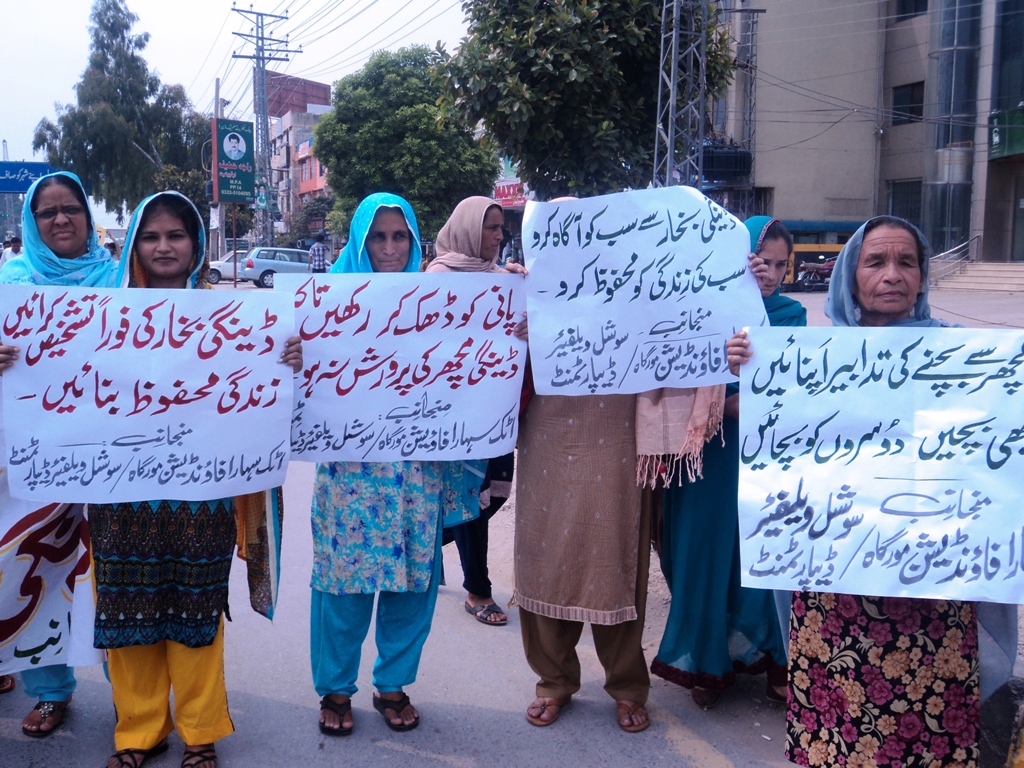 ڈینگی بخار کی فوراً تشخیص کرائیں
زندگی محفوظ بنائیں -
منجانب :
اٹک سہارا فاؤنڈیشن مورگاہ / سوشل ویلفیئر ڈیپارٹمنٹ
پانی کو ڈھک کر رکھیں تاکہ
ڈینگی مچھر کی پرورش نہ ہو
منجانب :
اٹک سہارا فاؤنڈیشن مورگاہ / سوشل ویلفیئر
ڈینگی بخار سے سب کو آگاہ کرو
سب کی زندگی کو محفوظ کرو -
منجانب :
سوشل ویلفیئر
فاؤنڈیشن مورگاہ / ڈیپارٹمنٹ
مچھر سے بچنے کی تدابیر اپنائیں
بھی بچیں دوسروں کو بچائیں
منجانب :
سوشل ویلفیئر
فاؤنڈیشن مورگاہ / ڈیپارٹمنٹ
M.P.A
PP 14